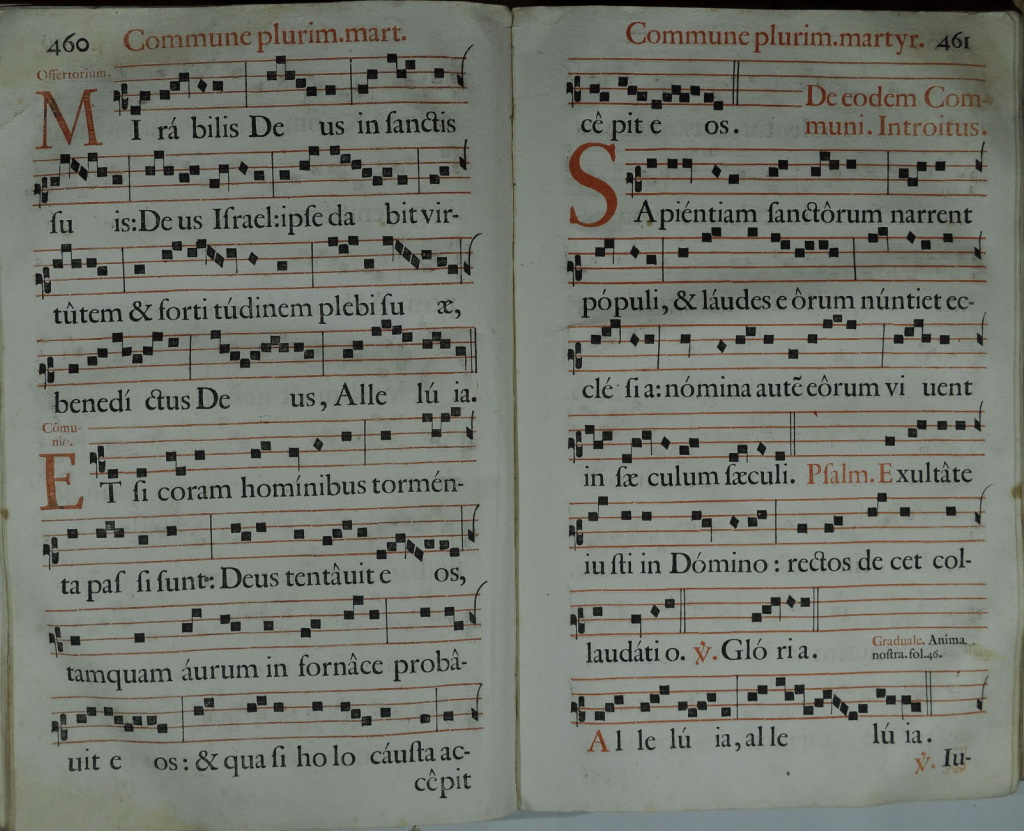 460 Commune plurim.mart.
Offertorium.
MI rá bilis De us in ſanctis
ſu is:De us Iſrael:ipſe da bit vir-
tûtem & forti túdinem plebi ſu æ,
benedí ctus De us, Alle lú ia.
Cômu-
nio.
ET ſi coram homínibus tormén-
ta paſ ſi ſunt: Deus tentâuit e os,
tamquam áurum in fornâce probâ-
uit e os: & qua ſi ho lo cáuſta ac-
cêpit
Commune plurim.martyr. 461
cê pit e os. De eodem Com-
muni. Introitus.
SA piéntiam ſanctôrum narrent
pópuli, & láudes e ôrum núntiet ec-
clé ſi a: nómina autē eôrum vi uent
in ſæ culum ſæculi. Pſalm. Exultâte
iu ſti in Dómino: rectos de cet col-
laudáti o. ℣. Gló ri a. Graduale. Anima
noſtra. fol.46.
Al le lú ia, al le lú ia.
℣. Iu-